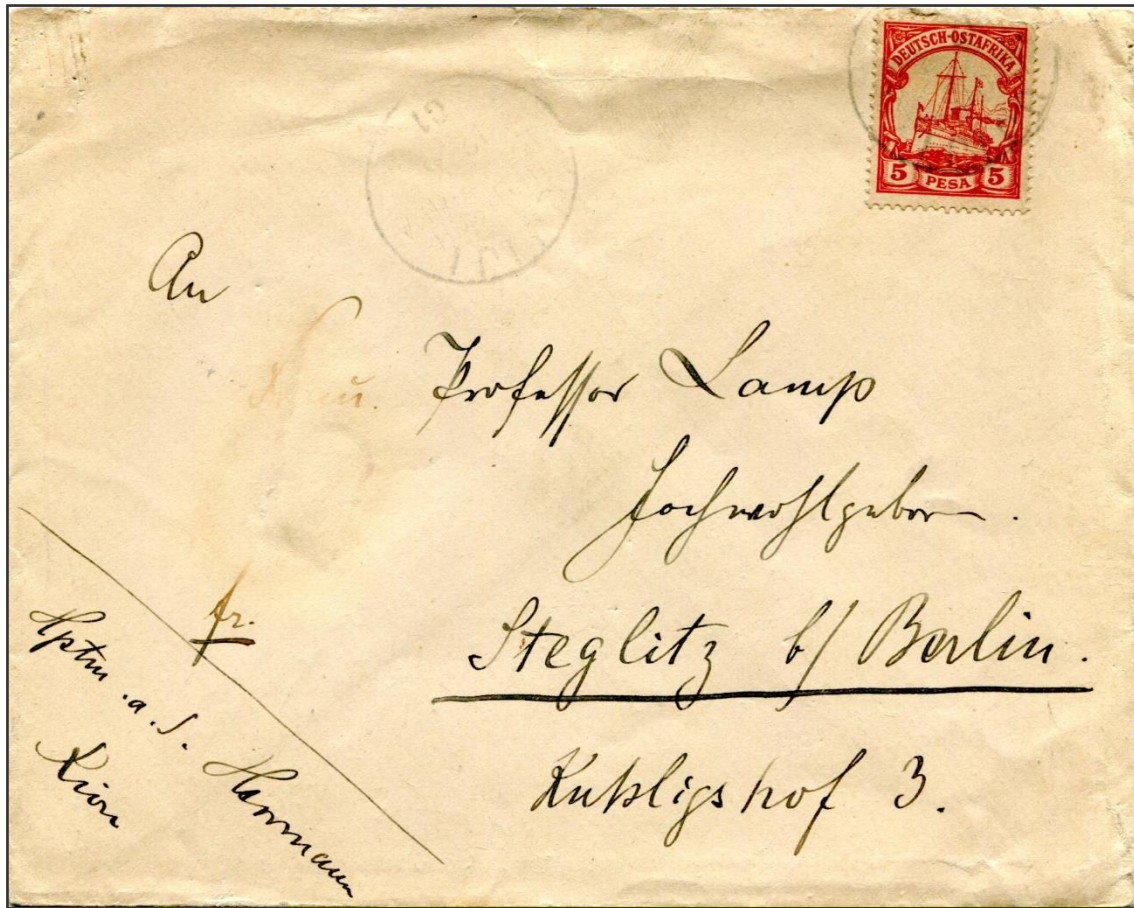 DEUTSCH-OSTAFRIKA
5 PESA 5
An
Frau Professor Lamp
Hochwohlgeboren.
Steglitz b/ Berlin.
Kuhligshof 3.
fr.
Hptm. a. D. Herrmann
Kivu